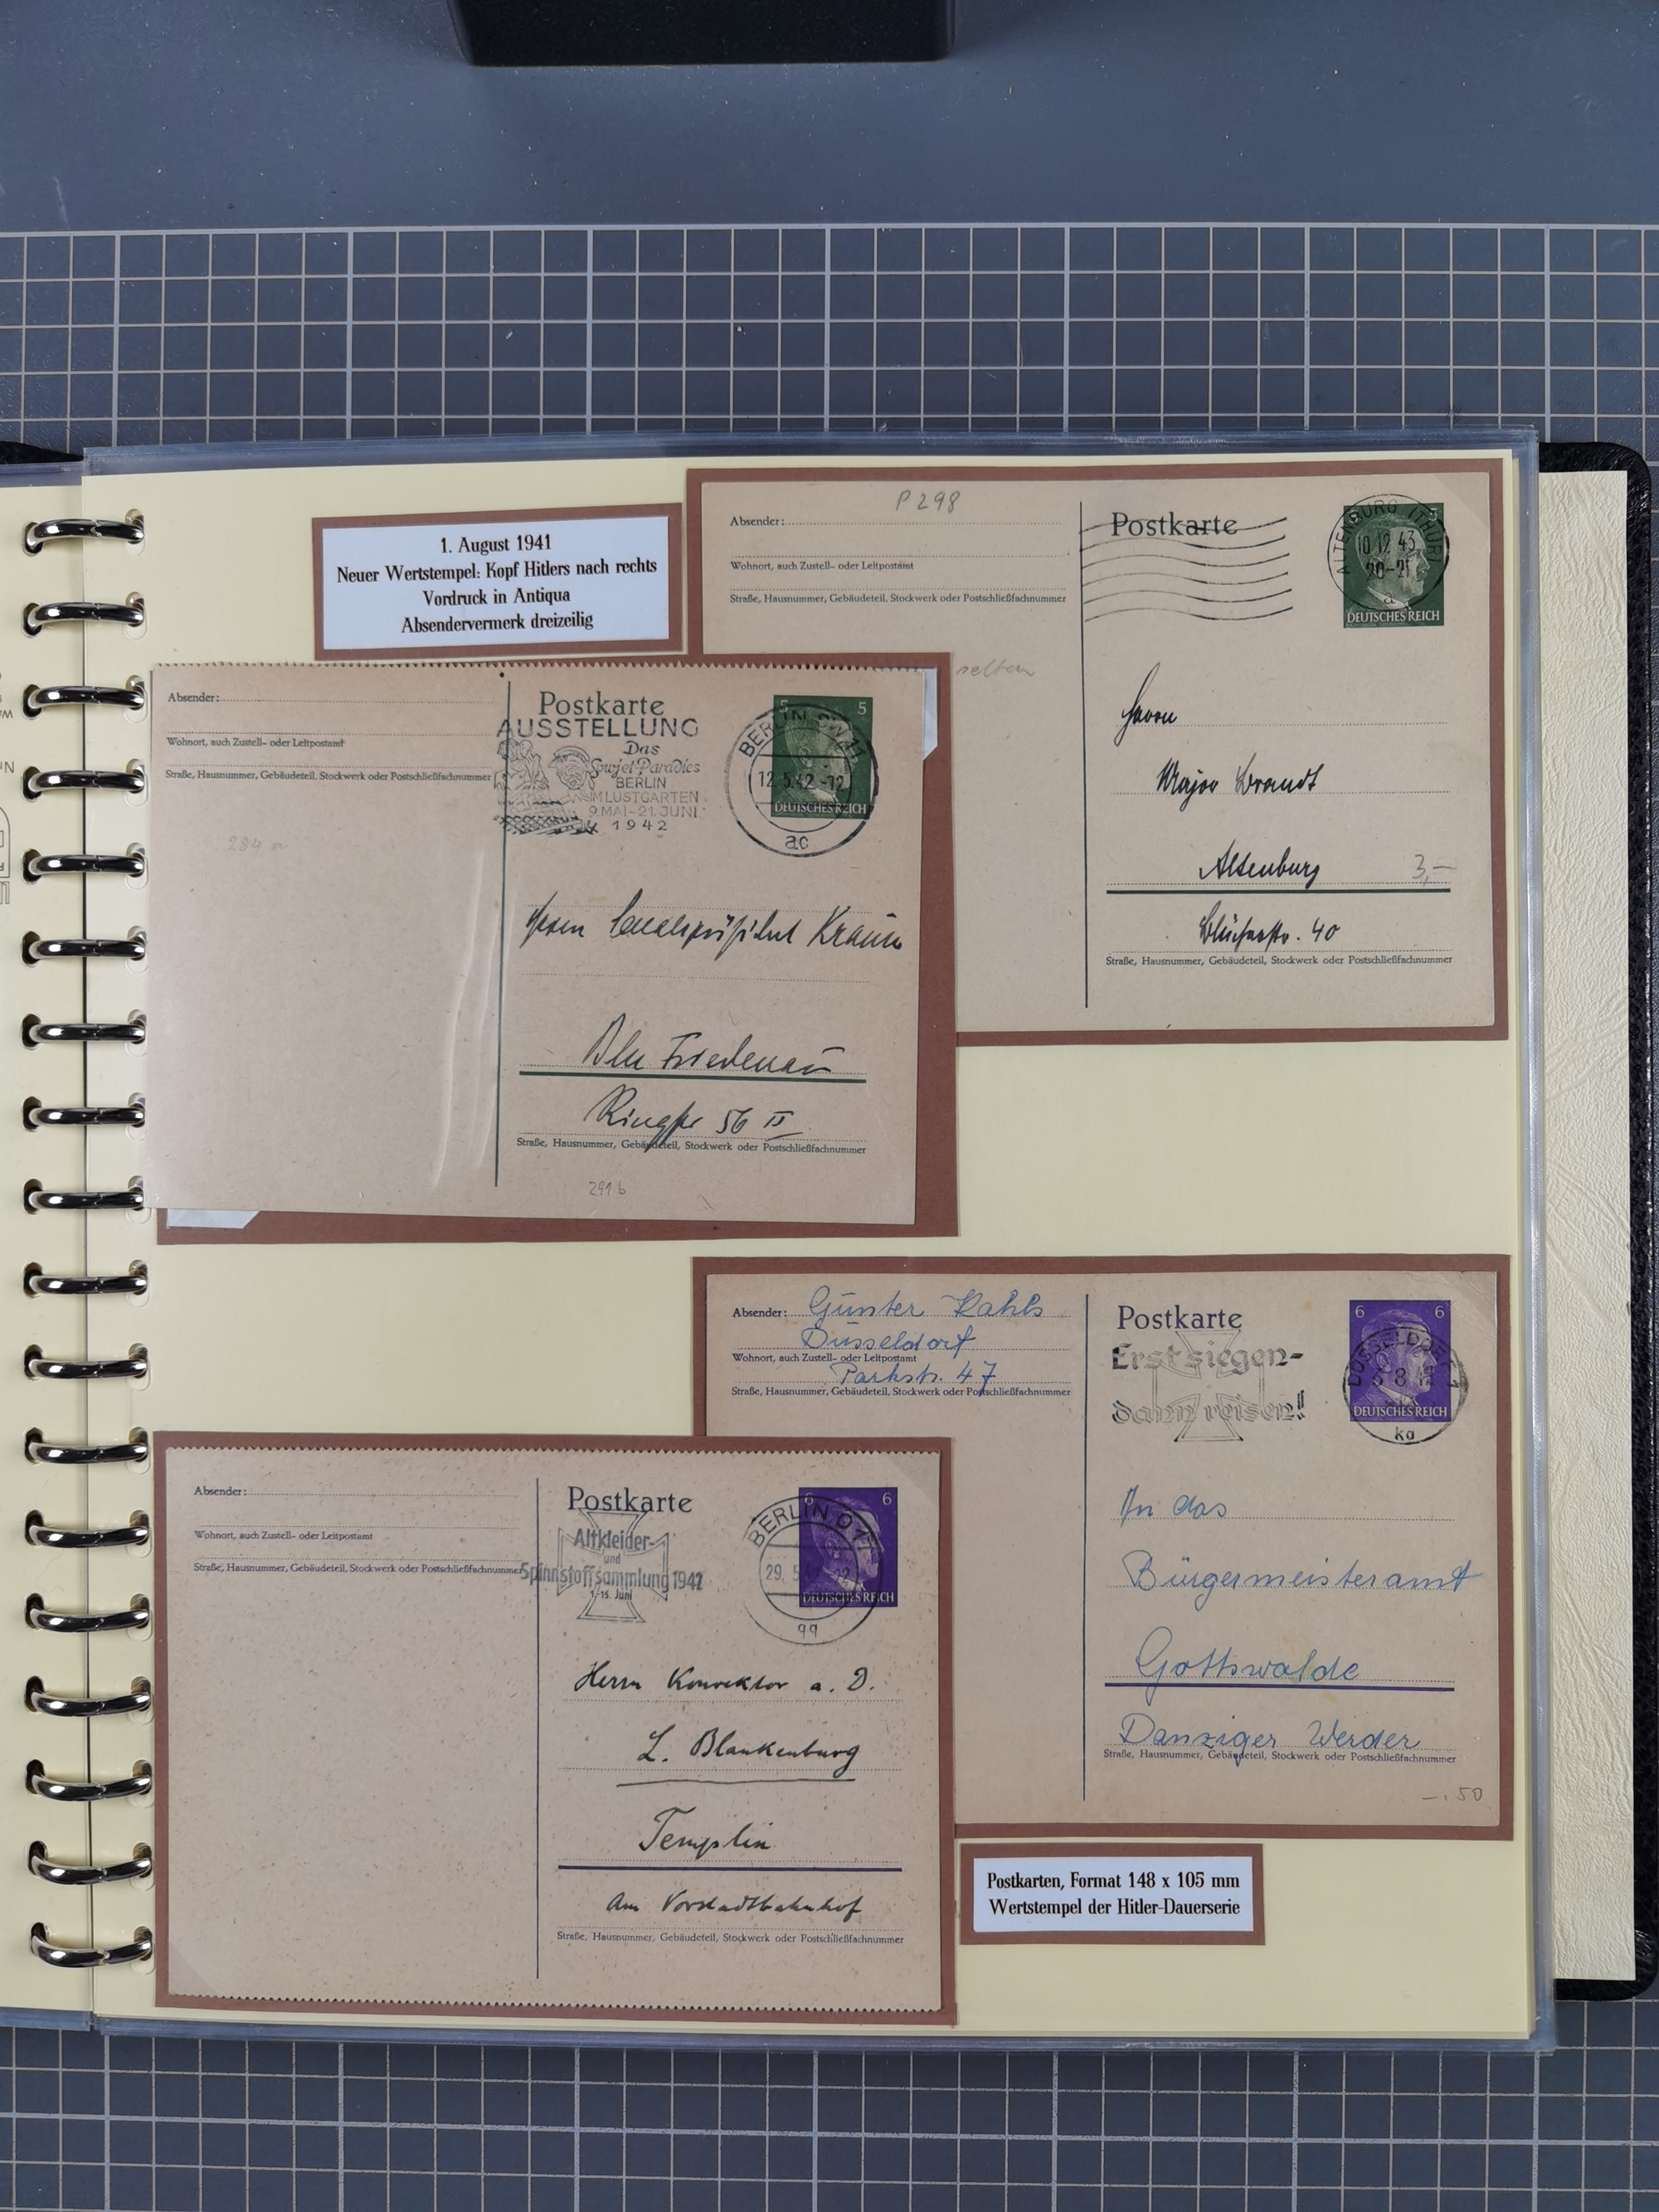 1. August 1941
Neuer Wertstempel: Kopf Hitlers nach rechts
Vordruck in Antiqua
Absendervermerk dreizeilig
P 298
Absender:
Wohnort, auch Zustell- oder Leitpostamt
Straße, Hausnummer, Gebäudeteil, Stockwerk oder Postschließfachnummer
Postkarte
ALTENBURG (THÜR)
10.12.43
20-21
a
DEUTSCHES REICH
selten
Herrn
Major Brandt
Altenburg
3,–
Blücherstr. 40
Straße, Hausnummer, Gebäudeteil, Stockwerk oder Postschließfachnummer
Absender:
Wohnort, auch Zustell- oder Leitpostamt
Straße, Hausnummer, Gebäudeteil, Stockwerk oder Postschließfachnummer
Postkarte
AUSSTELLUNG
Das
Sowjet-Paradies
BERLIN
IM LUSTGARTEN
9.MAI-21.JUNI
1942
5 5
BERLIN SW
12.5.42.-12
DEUTSCHES REICH
ac
Herrn Senatspräsident
Bln Friedenau
Ringstr 56 II
Straße, Hausnummer, Gebäudeteil, Stockwerk oder Postschließfachnummer
291 b
Absender: Günter Kahls
Düsseldorf
Wohnort, auch Zustell- oder Leitpostamt
Parkstr. 47
Straße, Hausnummer, Gebäudeteil, Stockwerk oder Postschließfachnummer
Postkarte
Erst siegen-
dann reisen!
6 6
DÜSSELDORF 1
8.42
DEUTSCHES REICH
ka
An das
Bürgermeisteramt
Gottswalde
Danziger Werder
Straße, Hausnummer, Gebäudeteil, Stockwerk oder Postschließfachnummer
–.50
Absender:
Wohnort, auch Zustell- oder Leitpostamt
Straße, Hausnummer, Gebäudeteil, Stockwerk oder Postschließfachnummer
Postkarte
Altkleider-
und
Spinnstoffsammlung 1942
1.-15. Juni
6 6
BERLIN O 17
29. 5.
DEUTSCHES REICH
qq
Herrn Konrektor a. D.
L. Blankenburg
Templin
Am Vorstadtbahnhof
Straße, Hausnummer, Gebäudeteil, Stockwerk oder Postschließfachnummer
Postkarten, Format 148 x 105 mm
Wertstempel der Hitler-Dauerserie